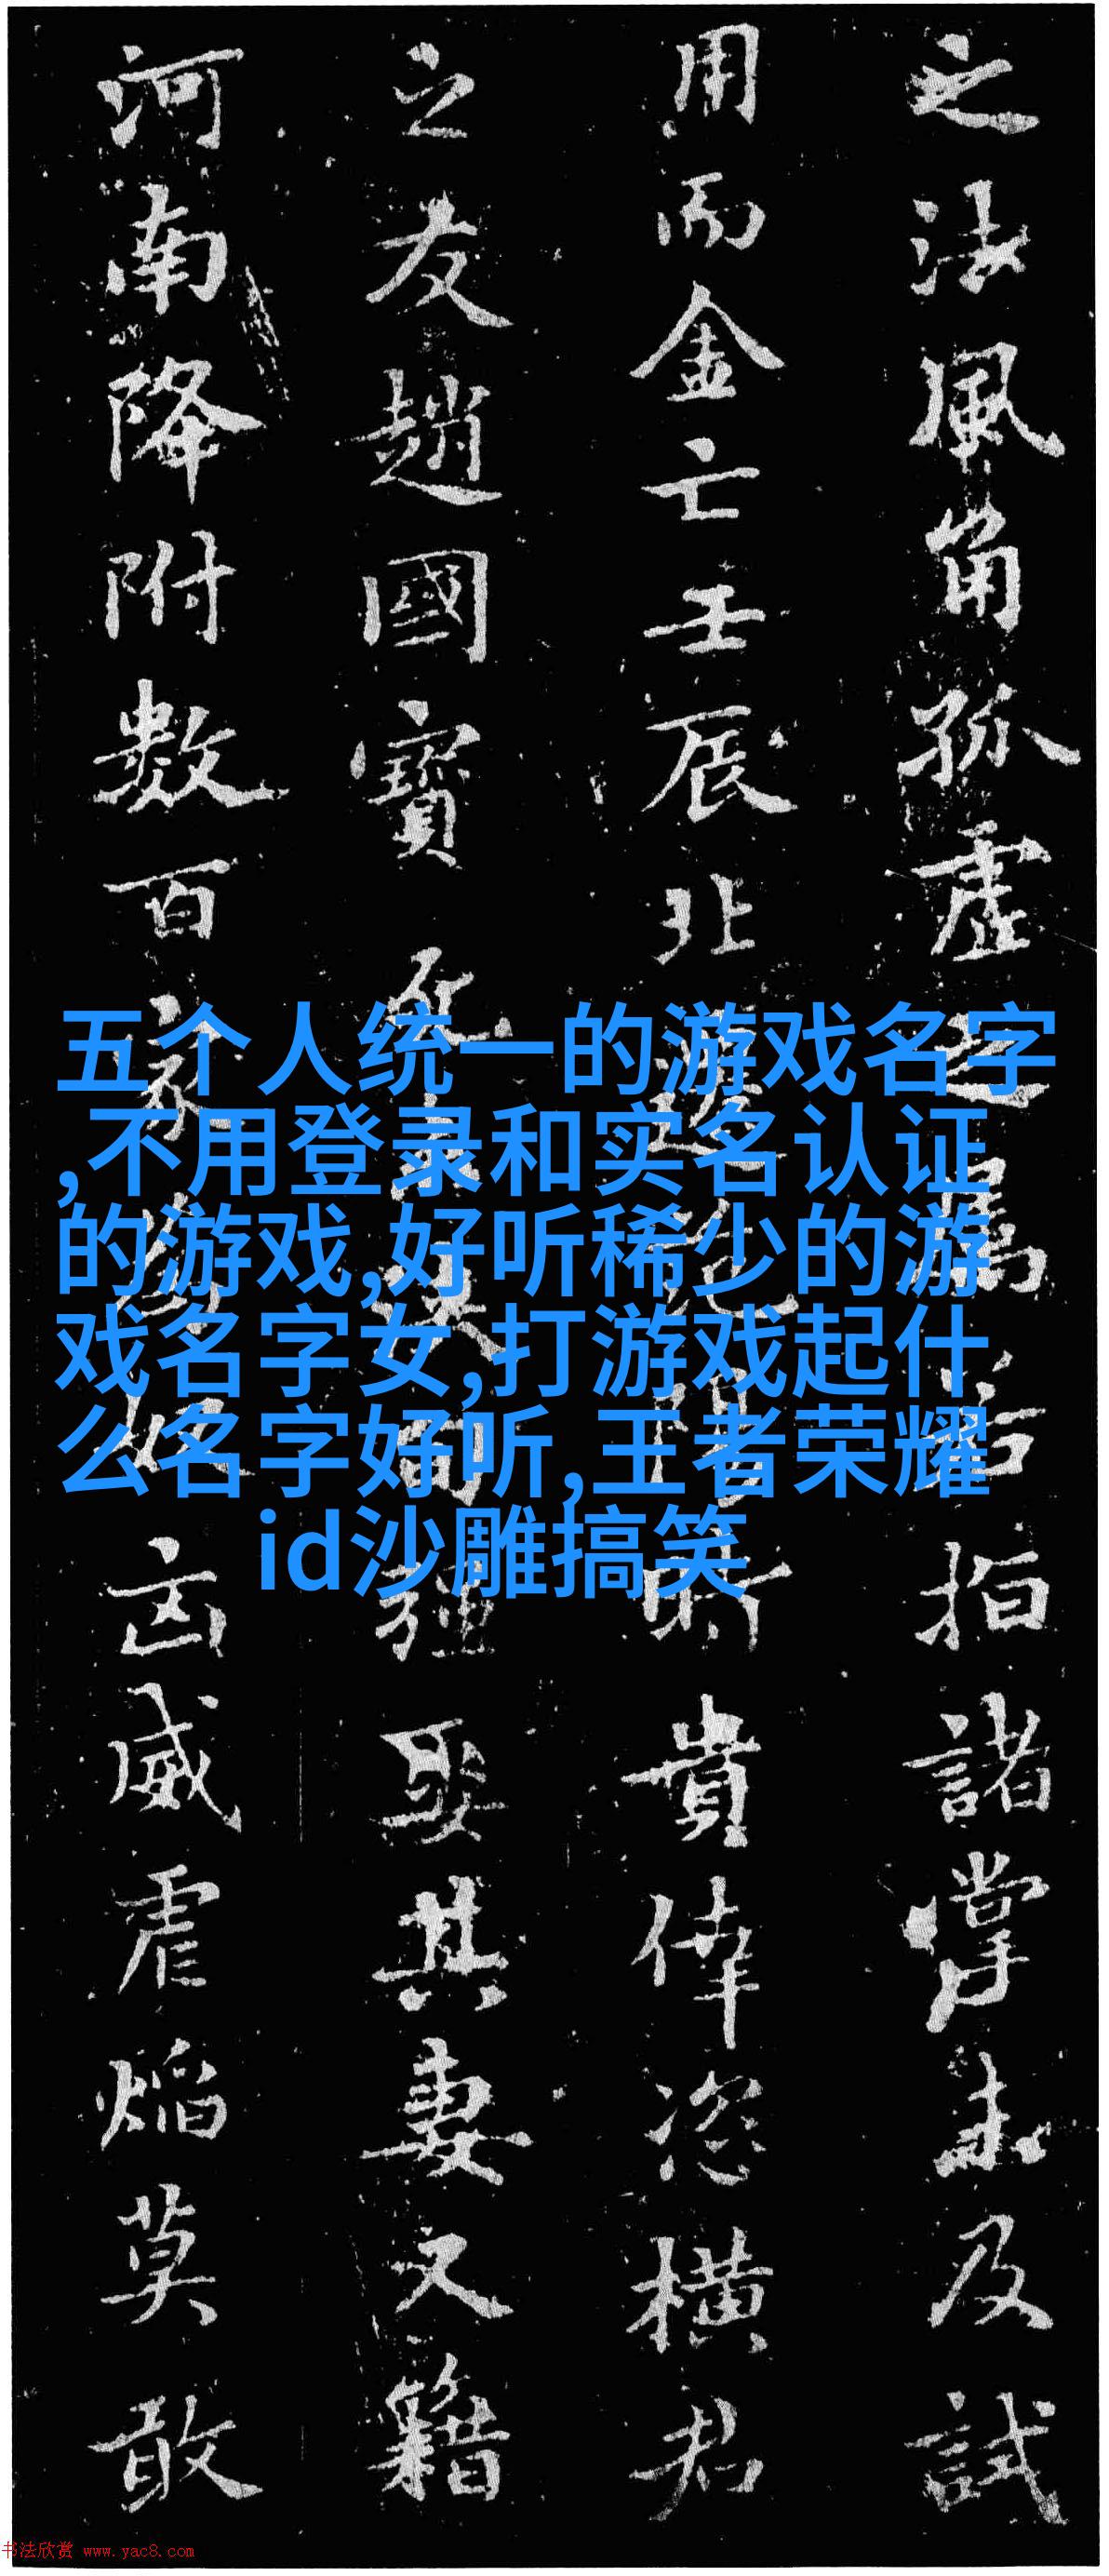 之法風角孤虛指諸掌未及試
用而金亡壬辰北貴倖恣橫君
之友趙國寶死強娶其妻文籍
河南降附數百家凶威虐焰莫敢
五个人统一的游戏名字
,不用登录和实名认证
的游戏,好听稀少的游
戏名字女,打游戏起什
么名字好听,王者荣耀
id沙雕搞笑
书法欣赏 www.yac8.com